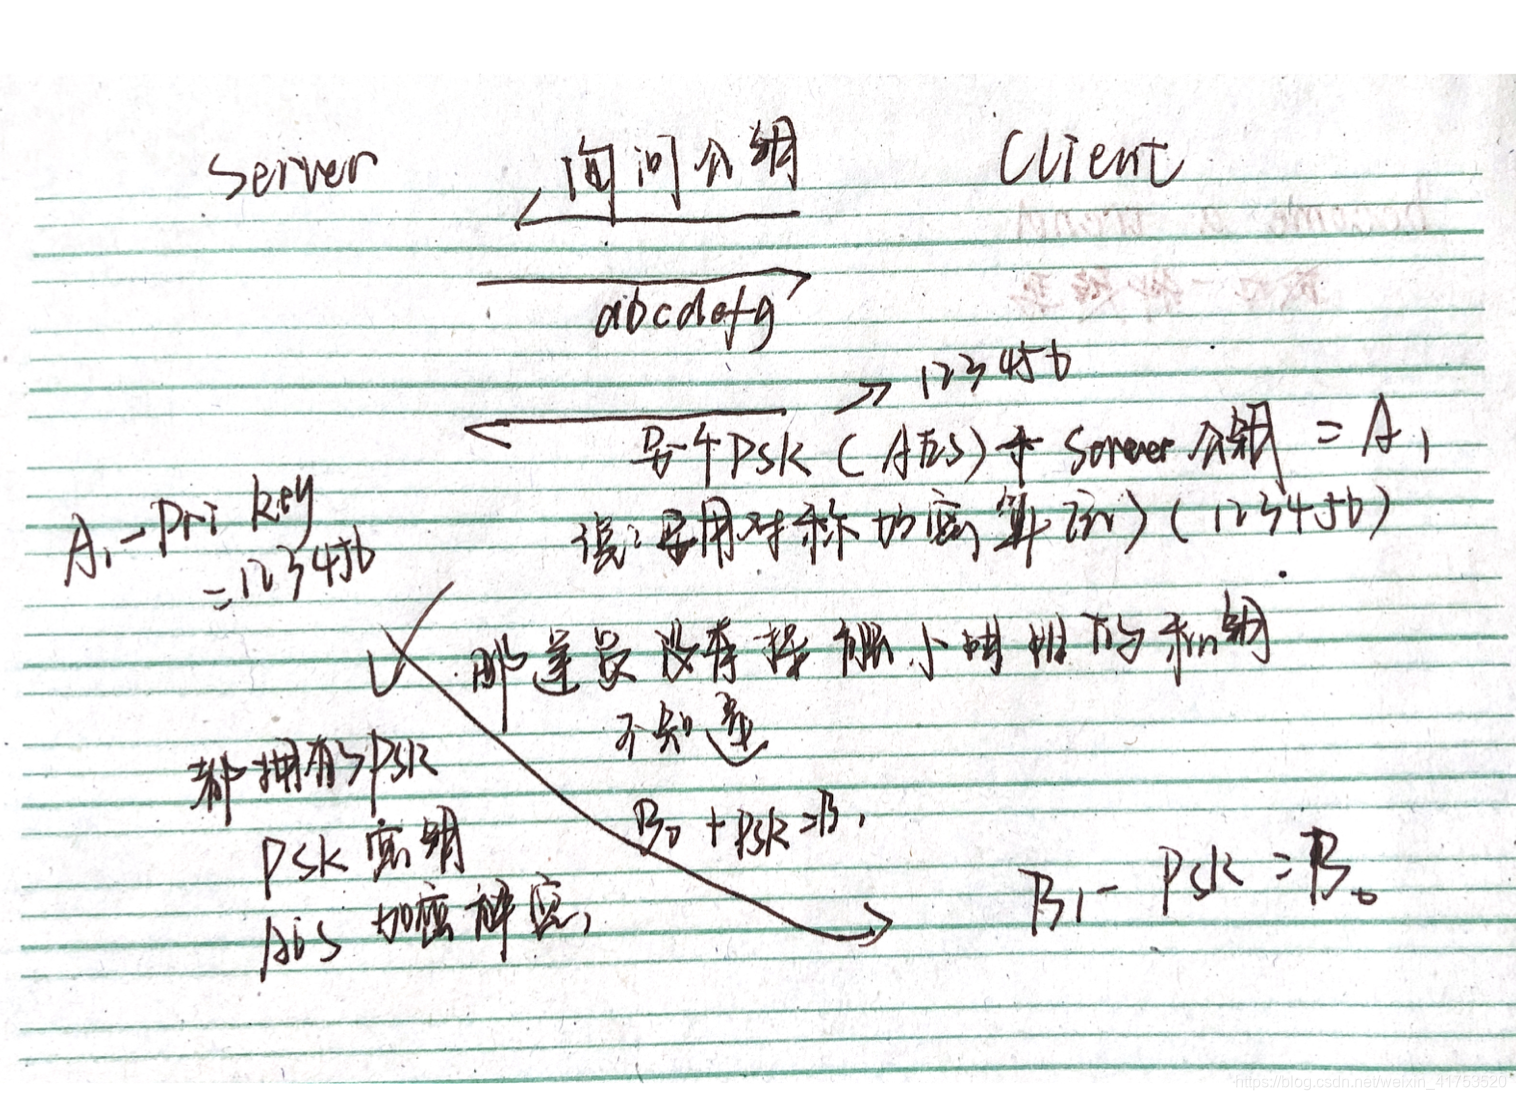 Server
询问公钥
Client
abcdefg
123456
另一个PSK(AES)+Server公钥=A1
说:要用对称加密算法)(123456)
A1-Pri key
=123456
那边没有接触小明的私钥
不知道
都拥有了PSK
PSK密钥
AES加密解密,
B0+PSK=B1
B1-PSK=B0
https://blog.csdn.net/weixin_41753520